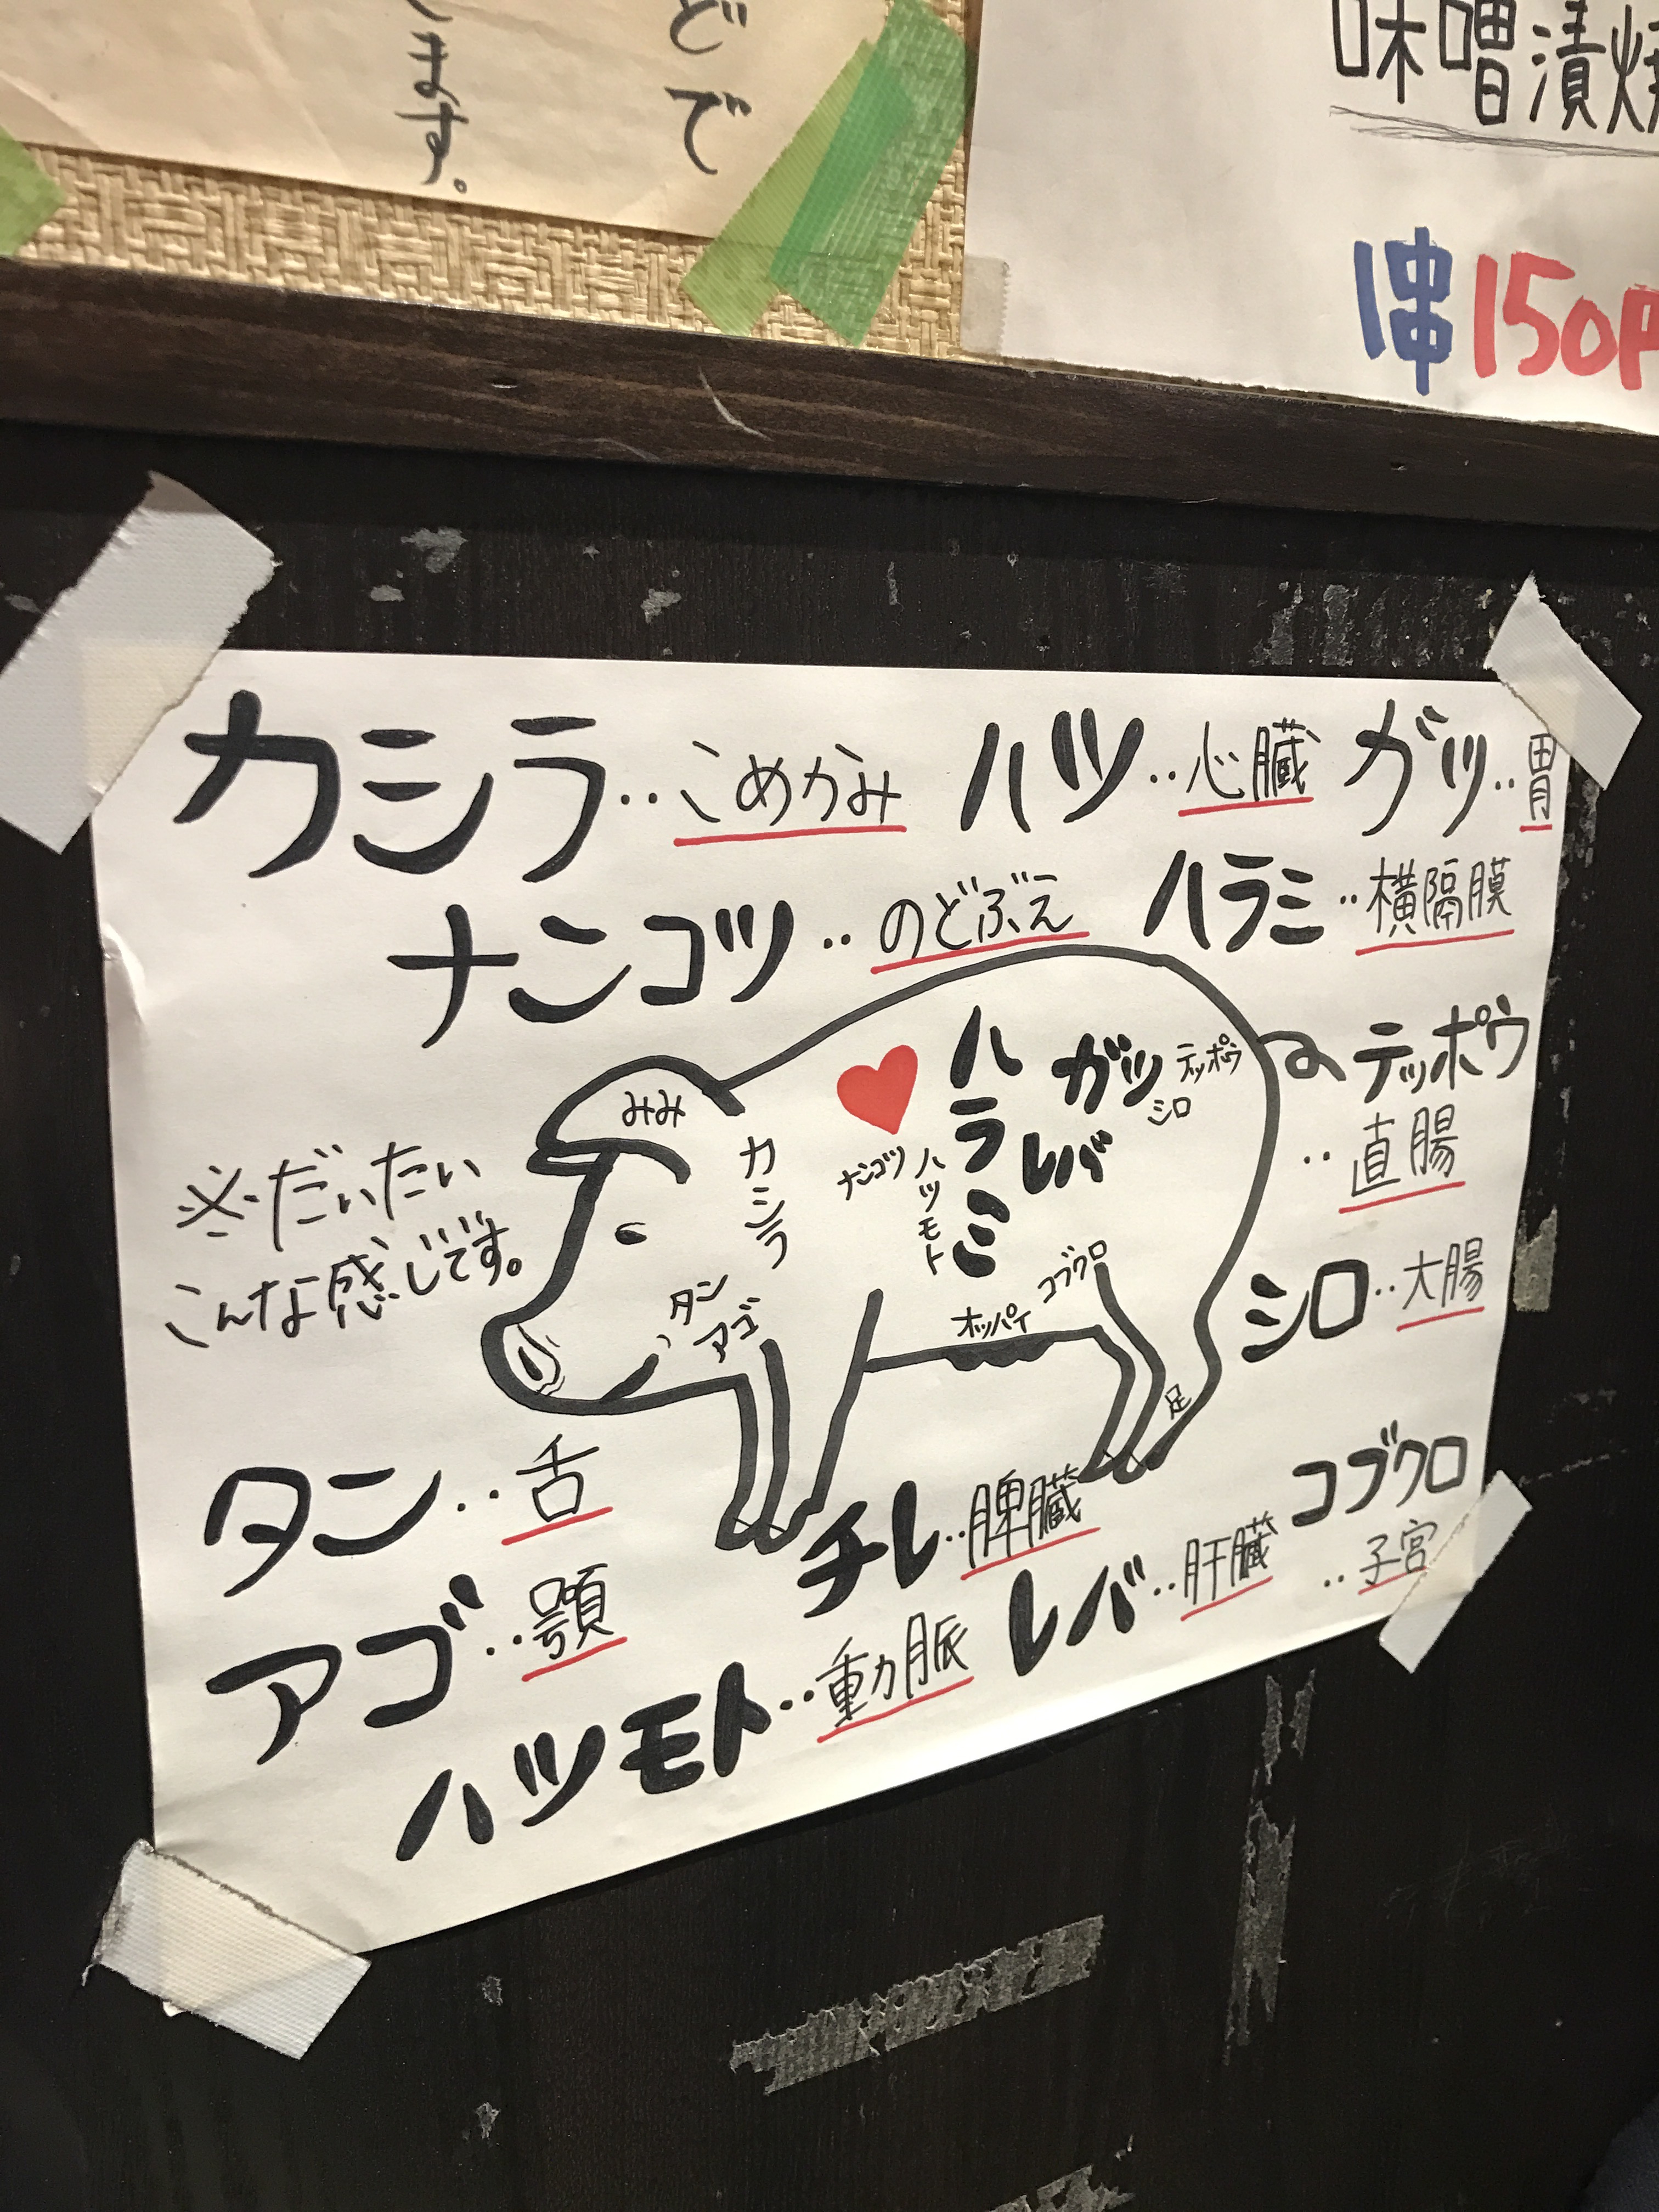 どで
ます。
味噌漬焼
1串150円
カシラ‥こめかみ
ハツ‥心臓
ガツ‥胃
ナンコツ‥のどぶえ
ハラミ‥横隔膜
みみ
カシラ
ナンコツ
ハツモト
ハラミ
ガツ
レバ
テッポウ
シロ
タン
アゴ
オッパイ
コブクロ
足
※だいたい
こんな感じです。
テッポウ
‥直腸
シロ‥大腸
タン‥舌
アゴ‥顎
チレ‥脾臓
ハツモト‥動脈
レバ‥肝臓
コブクロ
‥子宮